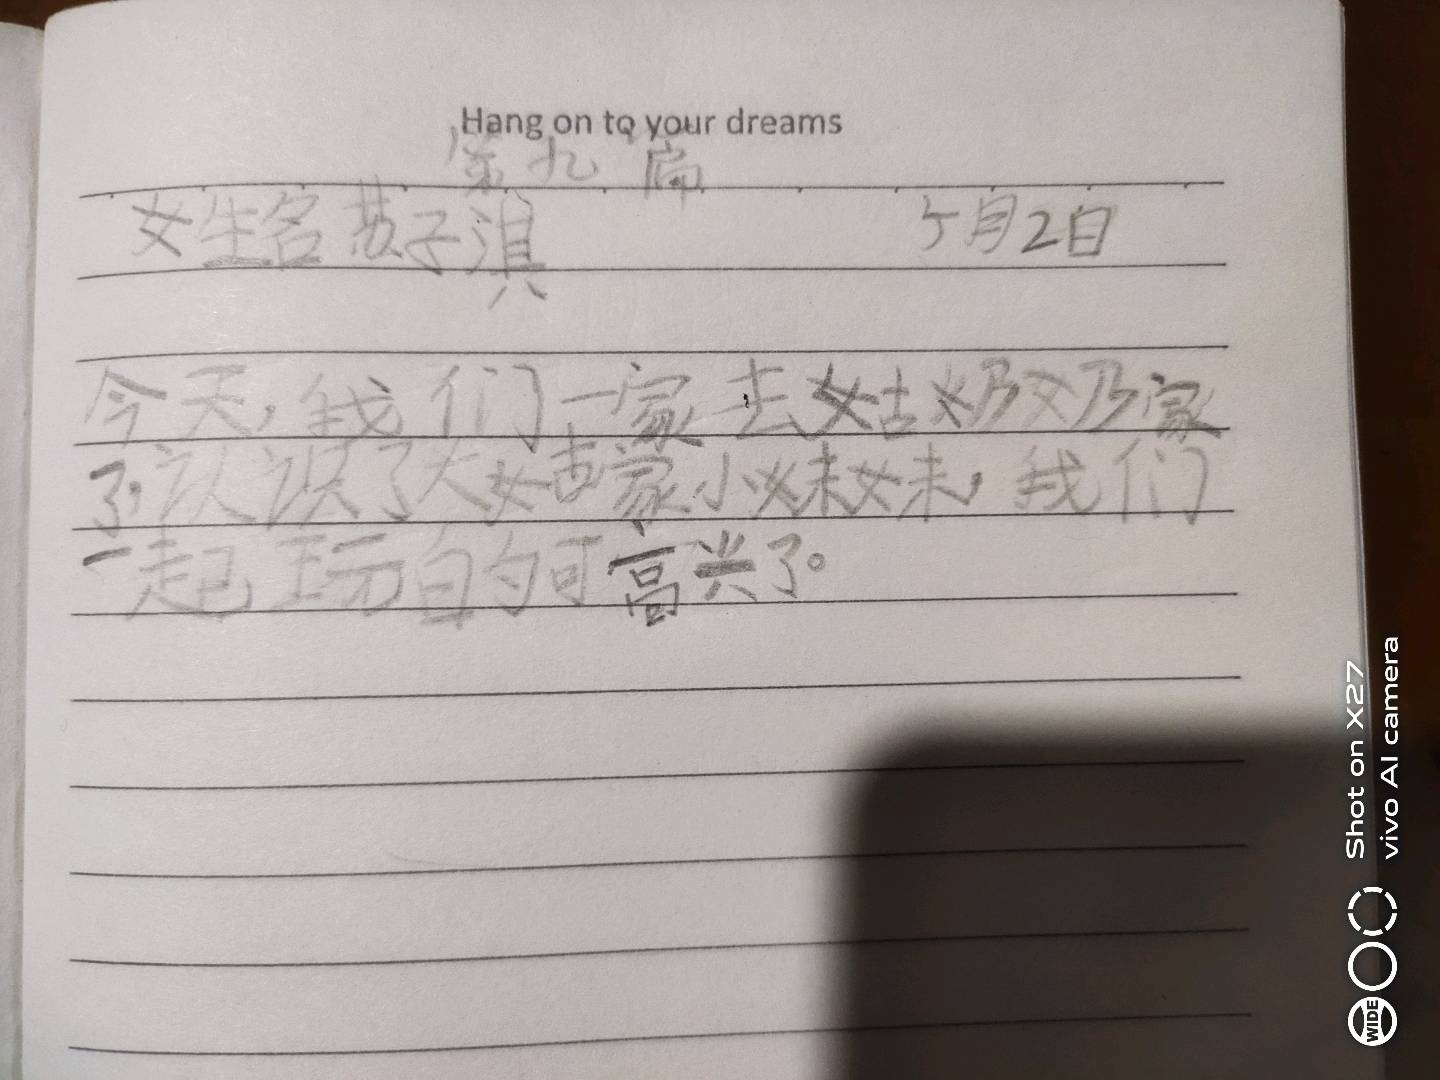 Hang on to your dreams
第九扁
女生名 苏子淇 5月2日
今天,我们一家去姑奶奶家
了,认识了大姑家小妹妹,我们
一起玩的可高兴了。
Shot on X27
vivo AI camera
WIDE